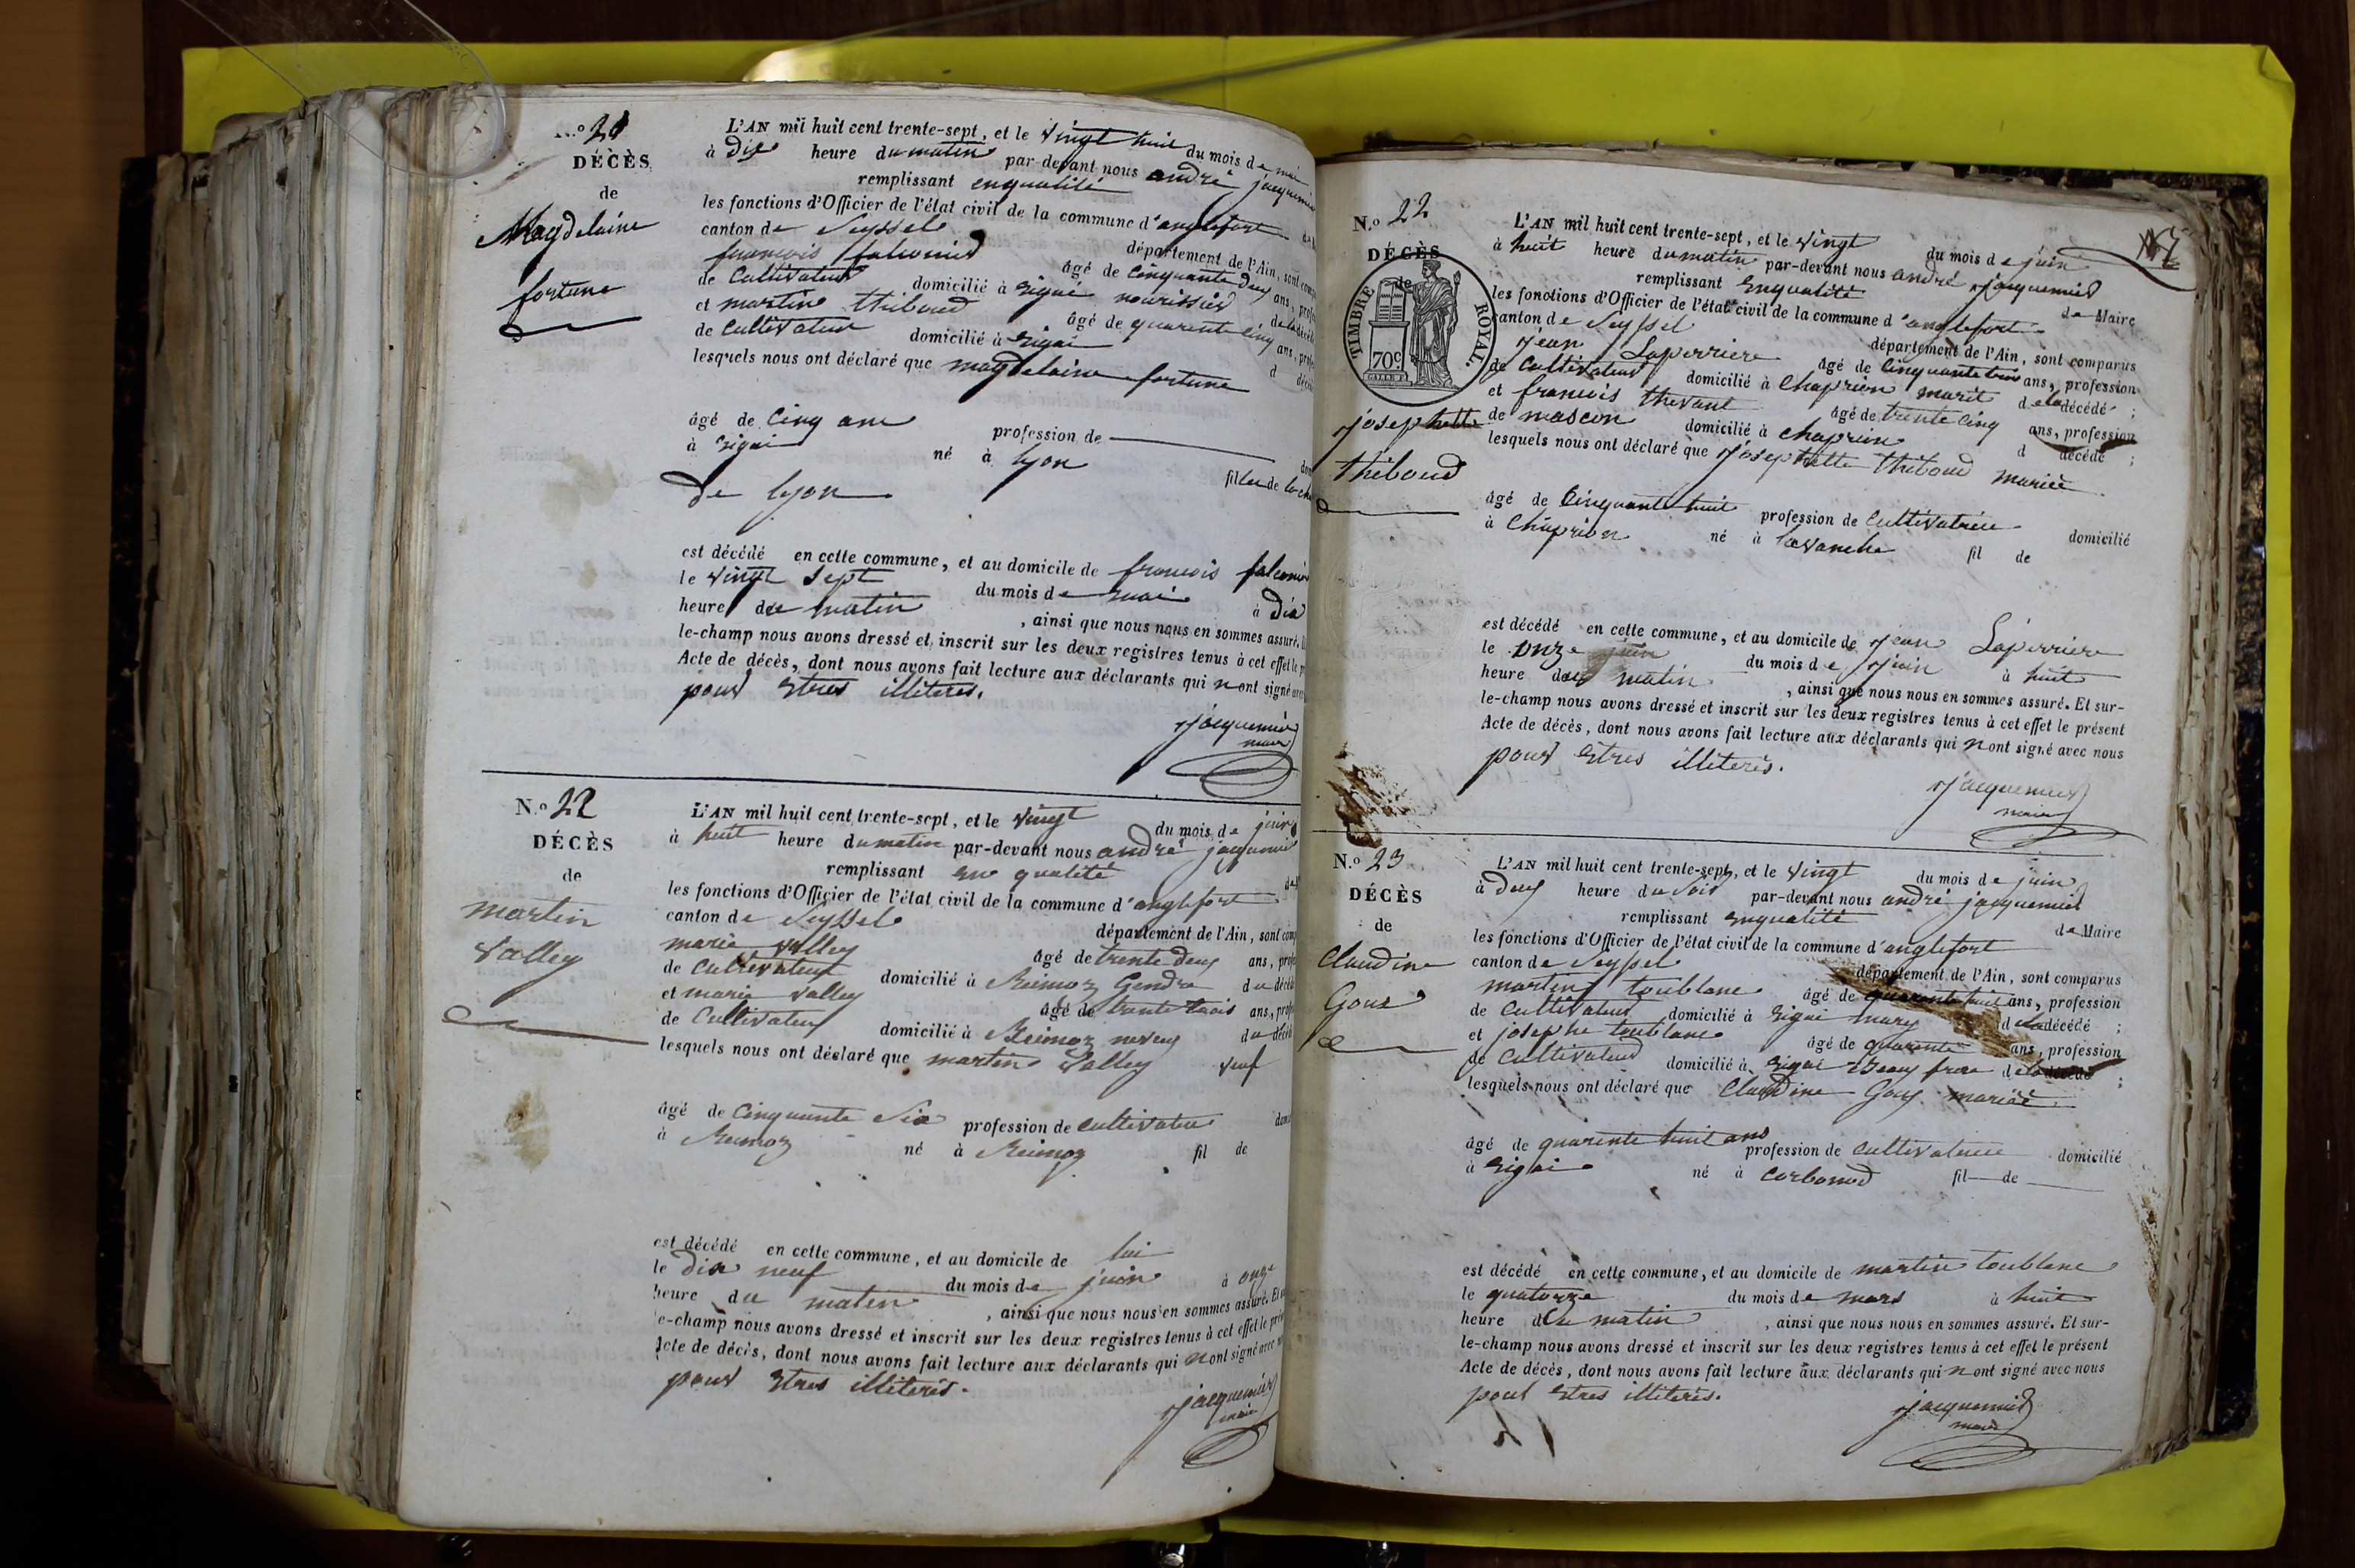 N.º 21
DÉCÈS
de
Magdelaine
fortune
L'AN mil huit cent trente-sept, et le vingt huit du mois de mai
à dix heure du matin par-devant nous andré jacquemier
remplissant enqualité
les fonctions d'Officier de l'état civil de la commune d'anglefort
canton de Seyssel département de l'Ain, sont comp
francois falconnier âgé de Cinquante deux ans, profe
de Cultivateur domicilié à Rigai nourissier de la décéd
et martin thiboud âgé de quarente Cinq ans, profe
de Cultivateur domicilié à Rigai d décéd
lesquels nous ont déclaré que magdelaine fortune
âgé de Cinq ans profession de
à Rigai né à lyon fille de la ch
de lyon
est décédé en cette commune, et au domicile de francois falconnier
le vingt sept du mois de mai à dix
heure du matin , ainsi que nous nous en sommes assuré.
le-champ nous avons dressé et inscrit sur les deux registres tenus à cet effet le p
Acte de décès, dont nous avons fait lecture aux déclarants qui n'ont signé avec
pour Etres illiteres.
jacquemier
maire
N.º 22
DÉCÈS
de
martin
Valley
L'AN mil huit cent trente-sept, et le vingt du mois de juin
à huit heure du matin par-devant nous andré jacquemier
remplissant en qualité
les fonctions d'Officier de l'état civil de la commune d'anglefort
canton de Seyssel département de l'Ain, sont comp
marie Valley âgé de trente deux ans, profe
de Cultivateur domicilié à Gendre du décédé
et marie Valley âgé de trente trois ans, profe
de Cultivateur domicilié à neveu du décéd
lesquels nous ont déclaré que martin Valley veuf
âgé de Cinquante Six profession de Cultivateur dom
à né à fil de
est décédé en cette commune, et au domicile de lui
le dix neuf du mois de juin à onze
heure du matin , ainsi que nous nous en sommes assuré. Et
le-champ nous avons dressé et inscrit sur les deux registres tenus à cet effet le pré
Acte de décès, dont nous avons fait lecture aux déclarants qui n'ont signé avec n
pour Etres illiteres.
jacquemier
maire
N.º 22
DÉCÈS
de
TIMBRE ROYAL.
70 c
josephette
thiboud
L'AN mil huit cent trente-sept, et le vingt du mois de juin
à huit heure du matin par-devant nous andré jacquemier
remplissant Enqualité de Maire
les fonctions d'Officier de l'état civil de la commune d'anglefort
canton de Seyssel département de l'Ain, sont comparus
jean Laperriere âgé de Cinquante trois ans, profession
de Cultivateur domicilié à Chaprion marit de la décédé ;
et francois thevant âgé de trente Cinq ans, profession
de mascon domicilié à chaprion d décédé ;
lesquels nous ont déclaré que josephette thiboud mariée
âgé de Cinquante huit profession de Cultivatrice domicilié
à Chaprion né à lavanche fil de
est décédé en cette commune, et au domicile de jean Laperriere
le onze juin du mois de juin à huit
heure du matin , ainsi que nous nous en sommes assuré. Et sur-
le-champ nous avons dressé et inscrit sur les deux registres tenus à cet effet le présent
Acte de décès, dont nous avons fait lecture aux déclarants qui n'ont signé avec nous
pour Etres illiteres.
jacquemier
maire
N.º 23
DÉCÈS
de
Claudine
Goux
L'AN mil huit cent trente-sept, et le vingt du mois de juin
à deux heure du soir par-devant nous andré jacquemier
remplissant enqualité de Maire
les fonctions d'Officier de l'état civil de la commune d'anglefort
canton de Seyssel département de l'Ain, sont comparus
martin toublanc âgé de quarente huit ans, profession
de Cultivateur domicilié à Rigai mary de la décédé ;
et josephe toublanc âgé de quarente ans, profession
de Cultivateur domicilié à Rigai Beaux frere de la décédé ;
lesquels nous ont déclaré que Claudine Goux mariée
âgé de quarente huit ans profession de Cultivatrice domicilié
à Rigai né à Corbonod fil de
est décédé en cette commune, et au domicile de martin toublanc
le quatorze du mois de mars à huit
heure du matin , ainsi que nous nous en sommes assuré. Et sur-
le-champ nous avons dressé et inscrit sur les deux registres tenus à cet effet le présent
Acte de décès, dont nous avons fait lecture aux déclarants qui n'ont signé avec nous
pour Etres illiteres.
jacquemier
maire